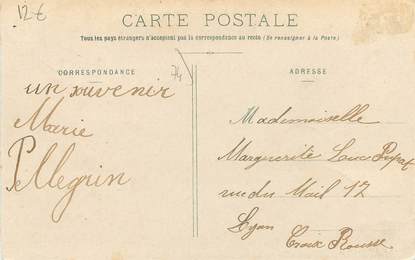 12€
CARTE POSTALE
Tous les pays étrangers n'acceptent pas la correspondance au recto (Se renseigner à la Poste)
CORRESPONDANCE
74
ADRESSE
un souvenir
Marie
Pellegrin
Mademoiselle
Marguerite Luc
rue du Mail 17
Lyon
Croix Rousse